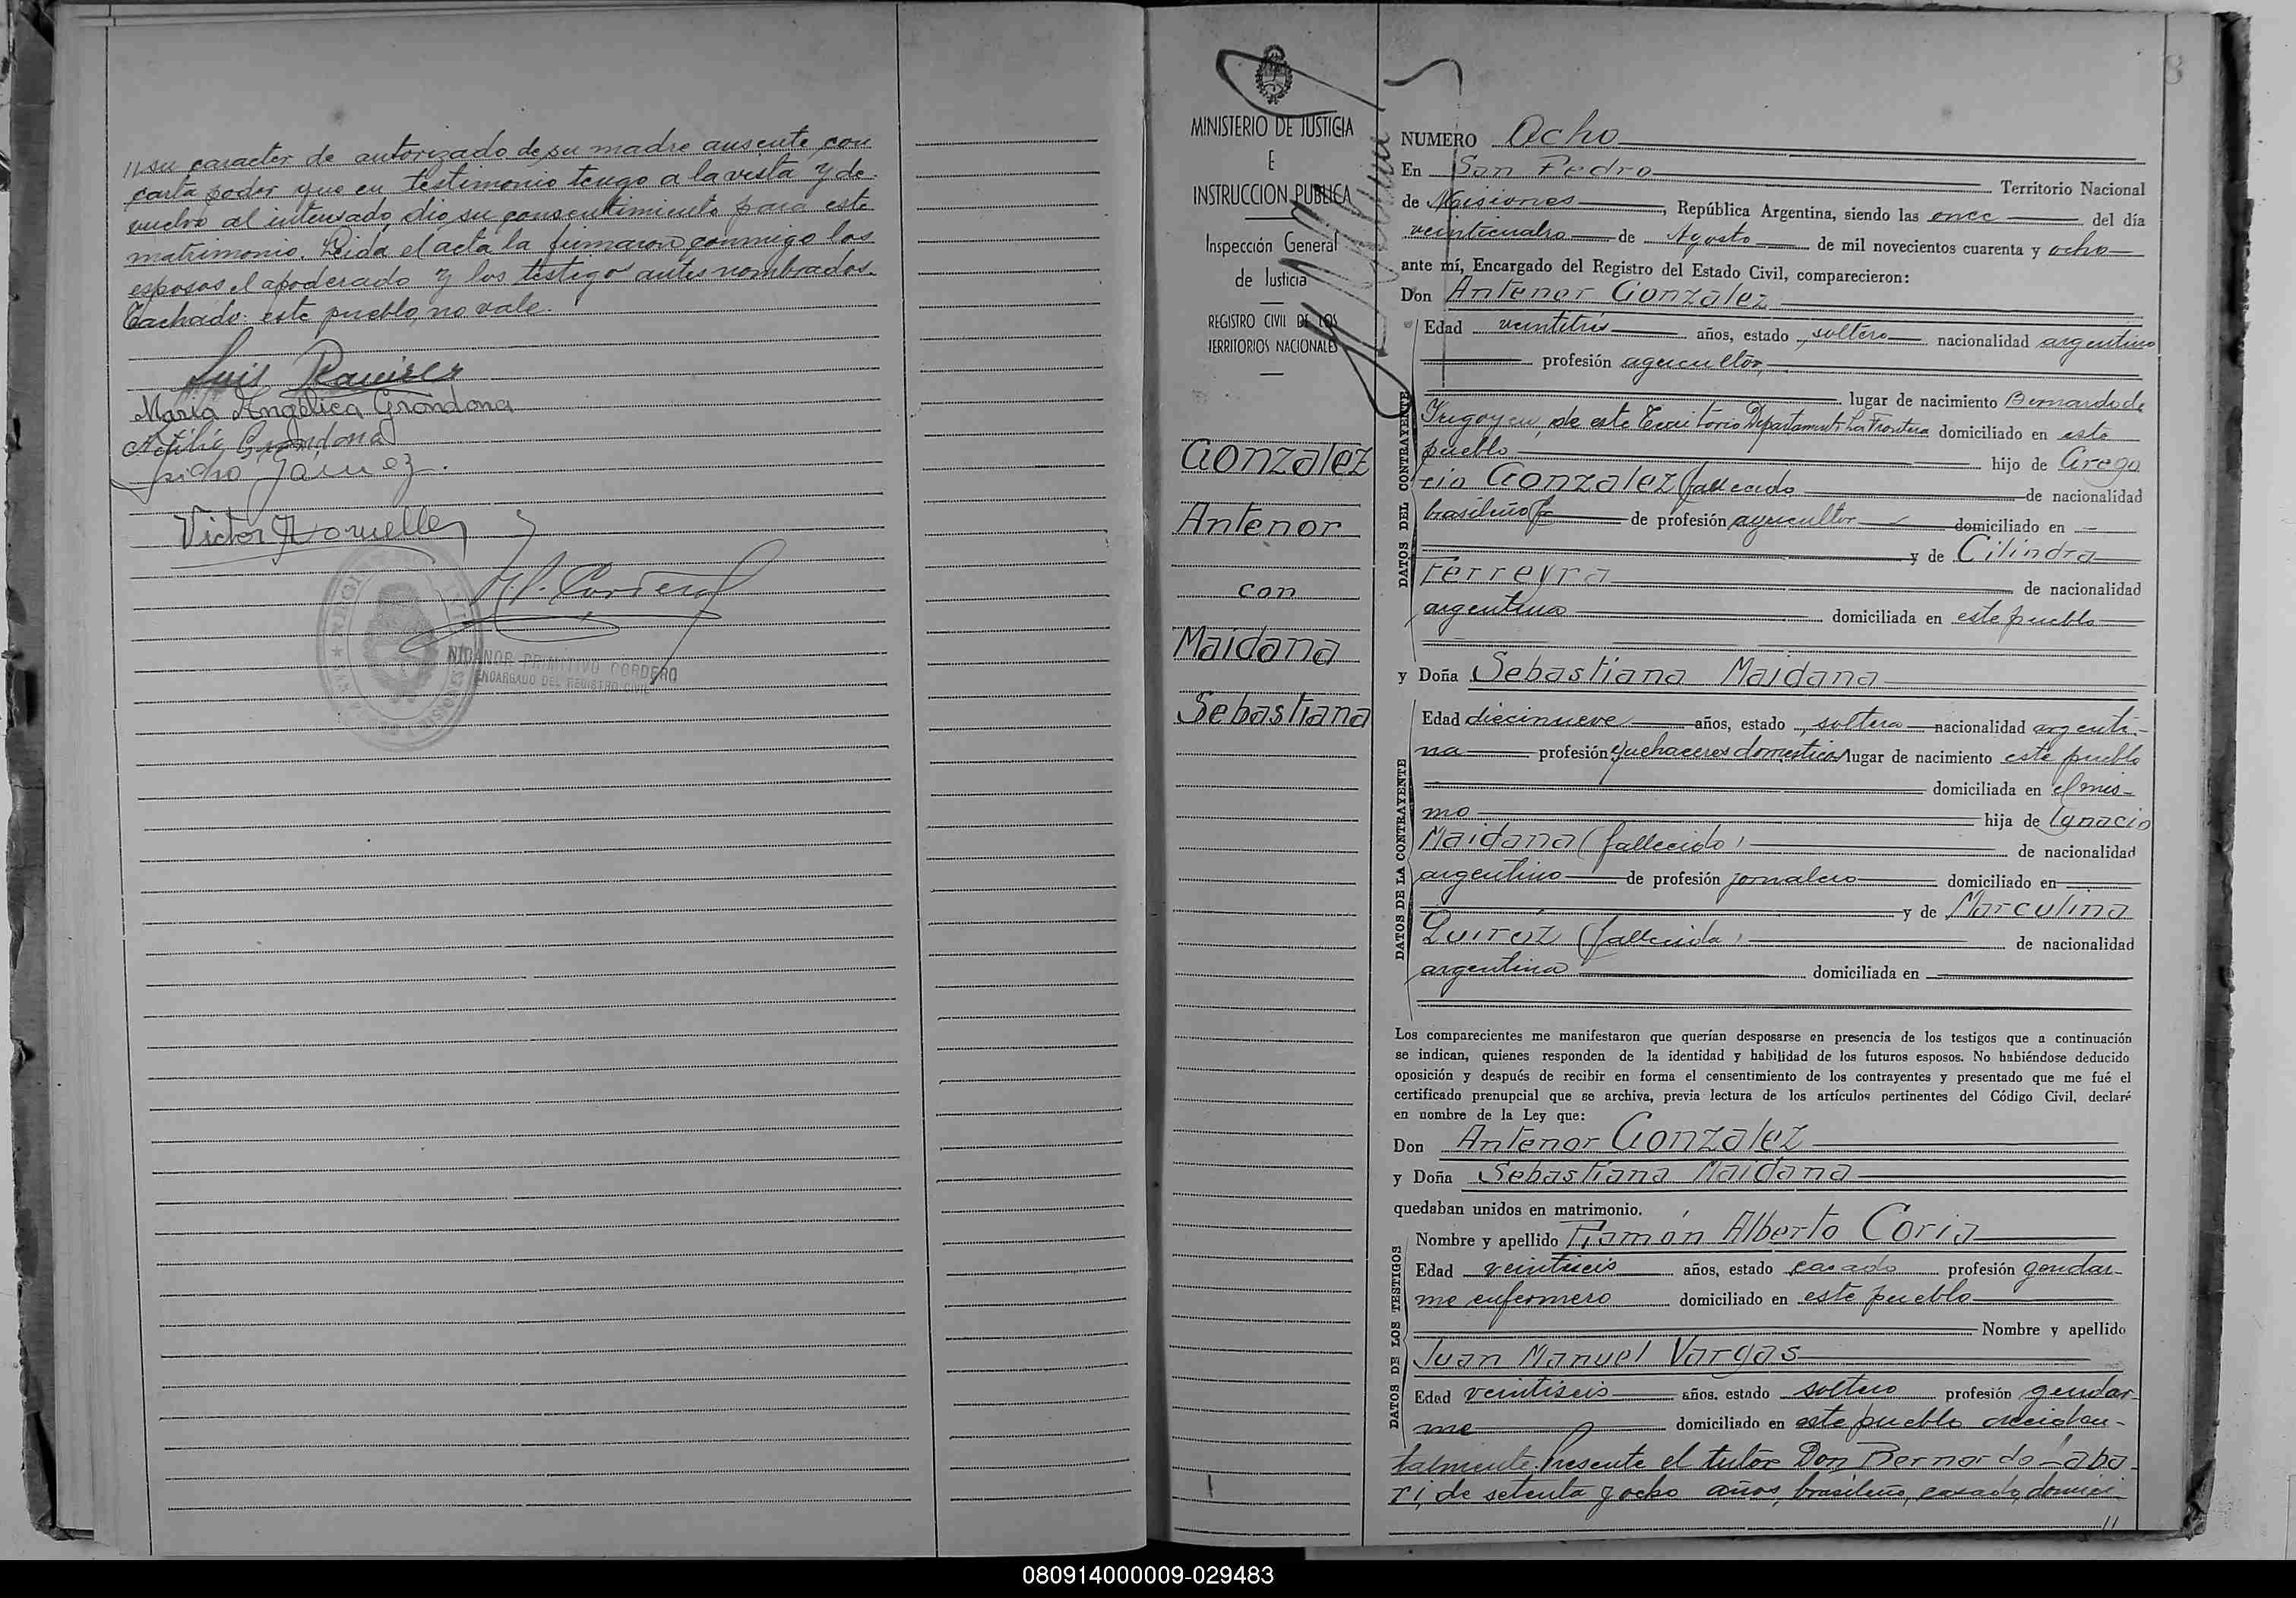 // su caracter de autorizado de su madre ausente, con
carta poder que en testimonio tengo a la vista y de-
vuelvo al interesado, dio su consentimiento para este
matrimonio. Leida el acta la firmaron conmigo los
esposos el apoderado y los testigos antes nombrados.
Tachado: este pueblo, no vale.
Luis Ramirez
Maria Angélica Grondona
Grondona
Victor
N. P. Cordero
NICANOR PRIMITIVO CORDERO
ENCARGADO DEL REGISTRO CIVIL
MINISTERIO DE JUSTICIA
E
INSTRUCCION PUBLICA
Inspección General
de Justicia
REGISTRO CIVIL DE LOS
TERRITORIOS NACIONALES
Gonzalez
Antenor
con
Maidana
Sebastiana
8
NUMERO Ocho
En San Pedro Territorio Nacional
de Misiones, República Argentina, siendo las once del día
veinticuatro de Agosto de mil novecientos cuarenta y ocho
ante mí, Encargado del Registro del Estado Civil, comparecieron:
Don Antenor Gonzalez
DATOS DEL CONTRAYENTE
Edad veintitrés años, estado soltero nacionalidad argentino
profesión agricultor,
lugar de nacimiento Bernardo de
Irigoyen, de este Territorio Departamento La Frontera domiciliado en este
pueblo hijo de Grego
rio Gonzalez (fallecido de nacionalidad
brasileño de profesión agricultor domiciliado en
y de Cilindra
Ferreyra de nacionalidad
argentina domiciliada en este pueblo
y Doña Sebastiana Maidana
DATOS DE LA CONTRAYENTE
Edad diecinueve años, estado soltera nacionalidad argenti-
na profesión quehaceres domésticos lugar de nacimiento este pueblo
domiciliada en el mis-
mo hija de Ignacio
Maidana (fallecido) de nacionalidad
argentino de profesión jornalero domiciliado en
y de Marculina
Quiróz (fallecida) de nacionalidad
argentina domiciliada en
Los comparecientes me manifestaron que querían desposarse en presencia de los testigos que a continuación
se indican, quienes responden de la identidad y habilidad de los futuros esposos. No habiéndose deducido
oposición y después de recibir en forma el consentimiento de los contrayentes y presentado que me fué el
certificado prenupcial que se archiva, previa lectura de los artículos pertinentes del Código Civil, declaré
en nombre de la Ley que:
Don Antenor Gonzalez
y Doña Sebastiana Maidana
quedaban unidos en matrimonio.
DATOS DE LOS TESTIGOS
Nombre y apellido Ramón Alberto Coria
Edad veintiseis años, estado casado profesión gendar-
me enfermero domiciliado en este pueblo
Nombre y apellido
Juan Manuel Vargas
Edad veintiseis años, estado soltero profesión gendar-
me domiciliado en este pueblo acciden-
talmente. Presente el tutor Don Bernardo Laba-
ri, de setenta y ocho años, brasileño, casado, domici
//
080914000009-029483